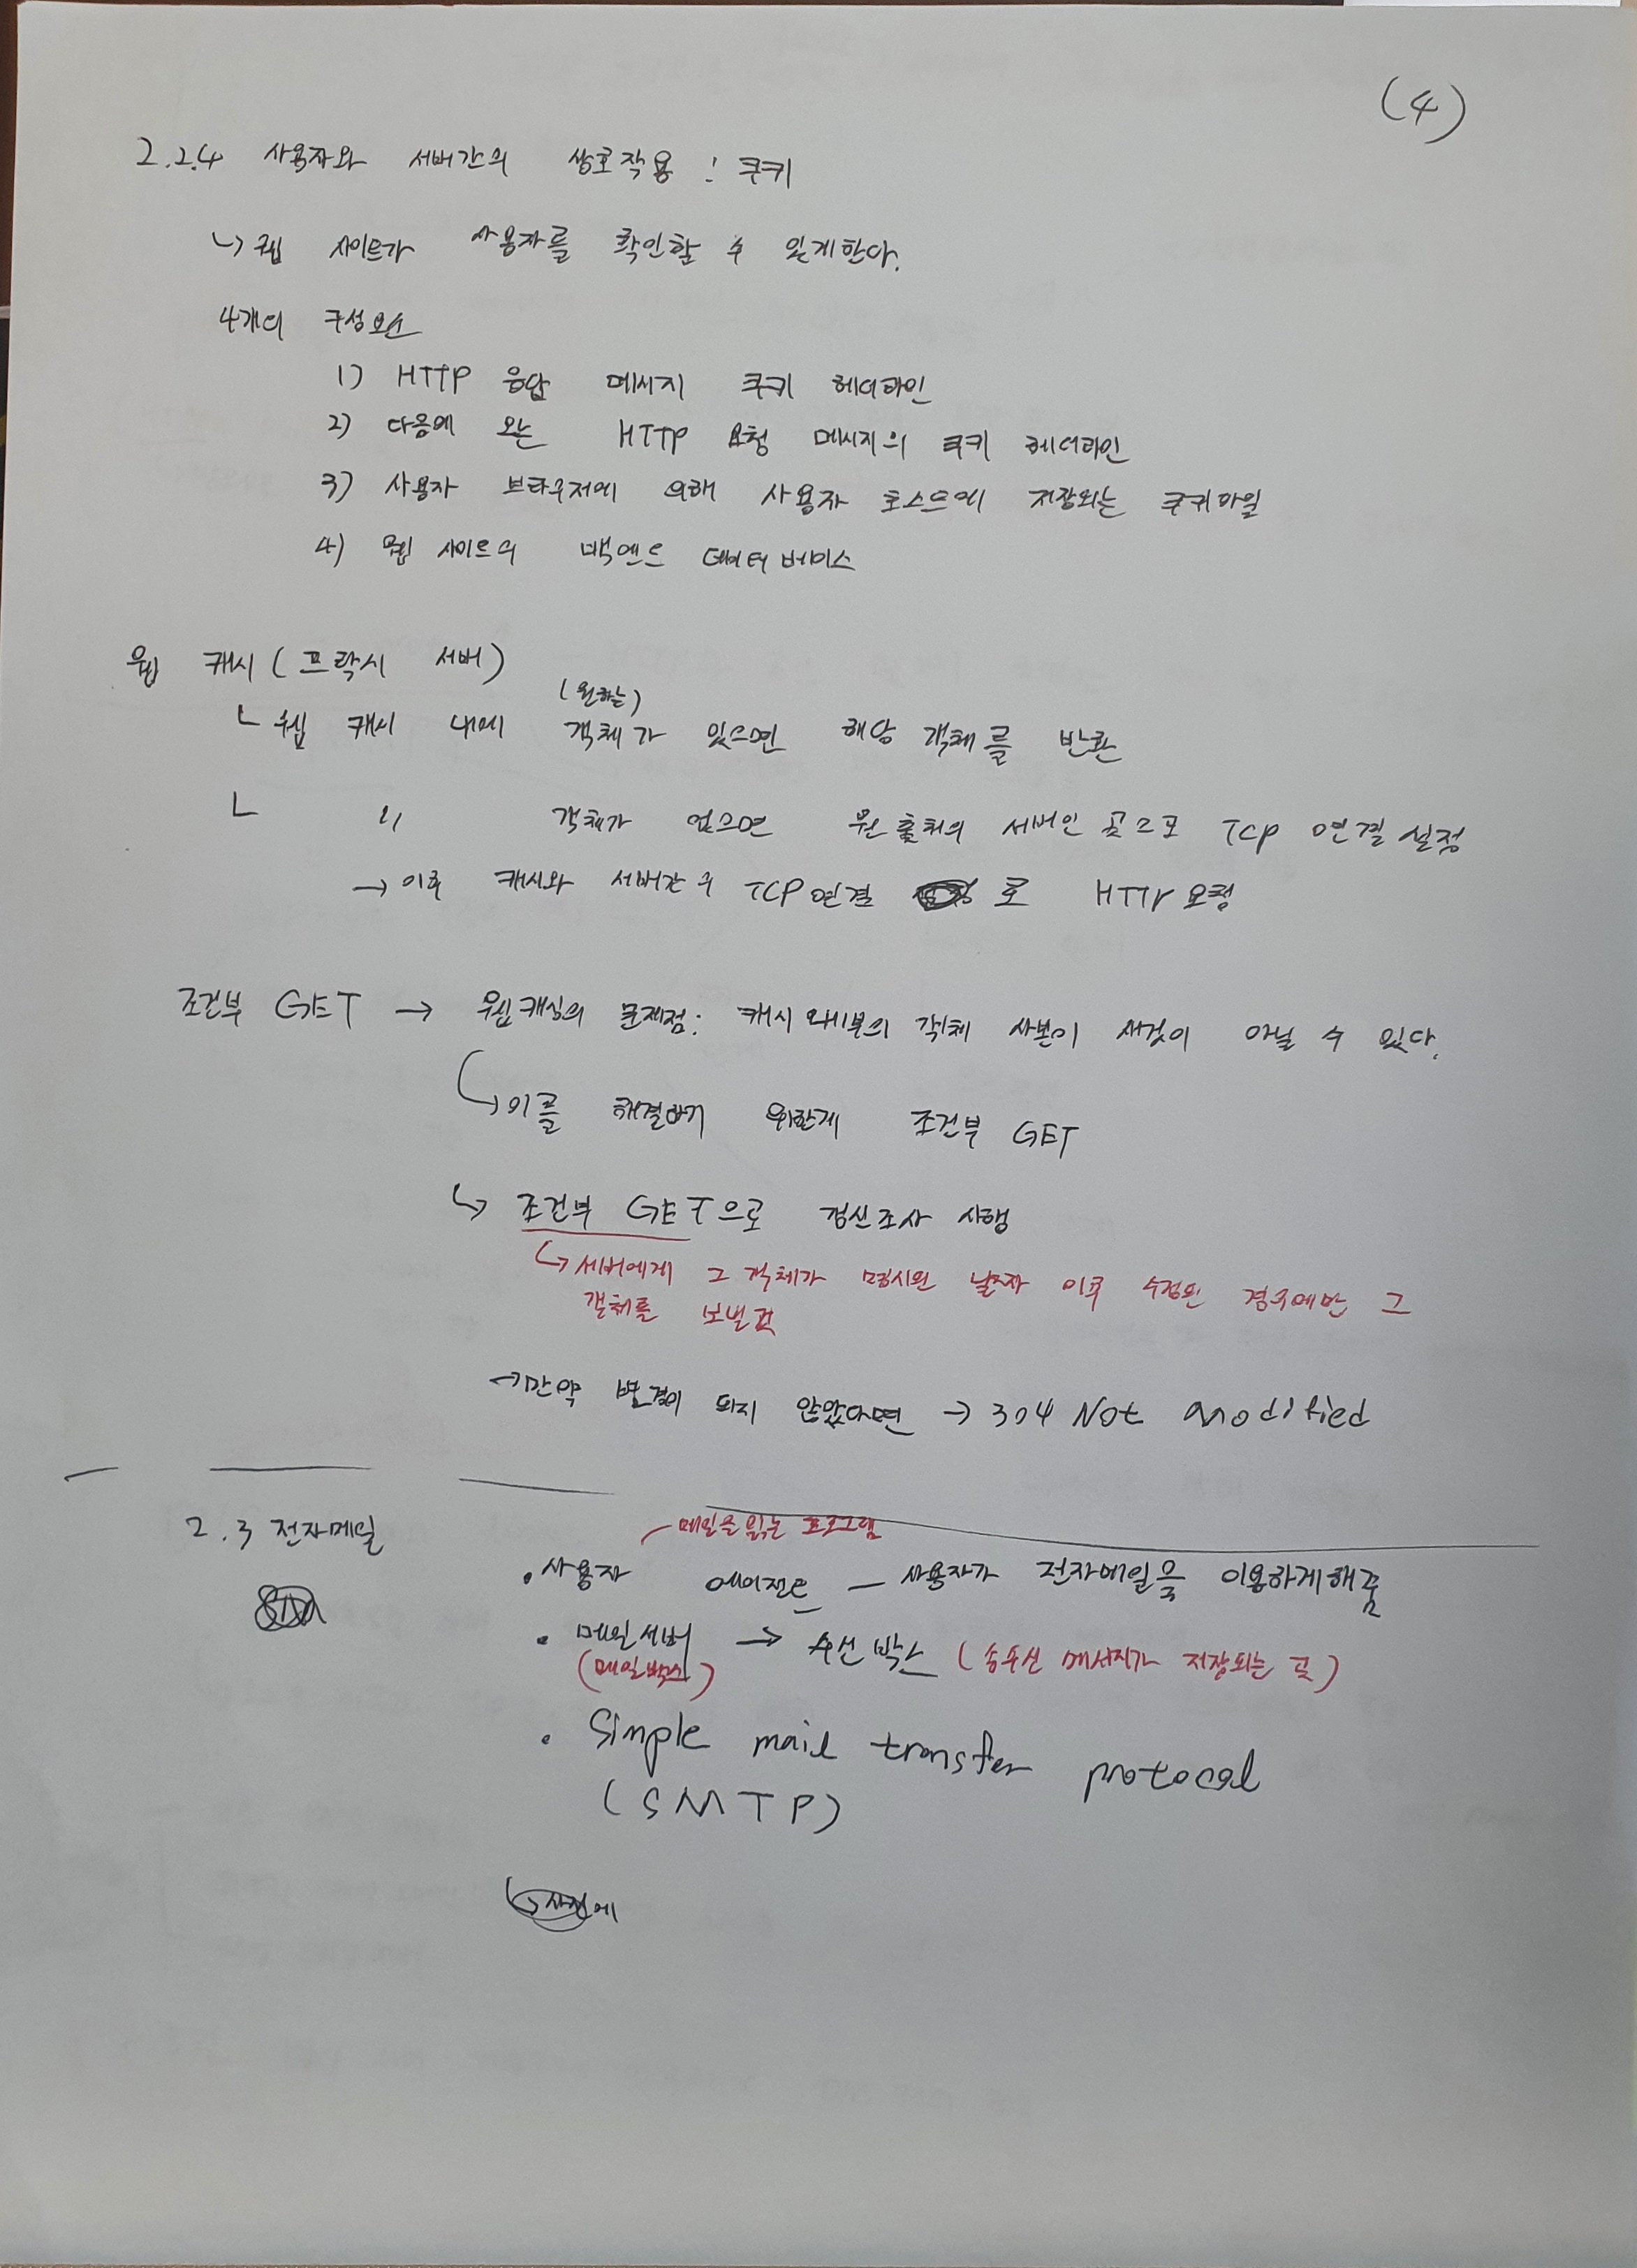 (4)
2.2.4 사용자와 서버간의 상호작용 : 쿠키
↳ 웹 사이트가 사용자를 확인할 수 있게한다.
4개의 구성요소
1) HTTP 응답 메시지 쿠키 헤더라인
2) 다음에 오는 HTTP 요청 메시지의 쿠키 헤더라인
3) 사용자 브라우저에 의해 사용자 호스트에 저장되는 쿠키파일
4) 웹 사이트의 백엔드 데이터 베이스
웹 캐시 (프락시 서버)
(원하는)
ㄴ 웹 캐시 내에 객체가 있으면 해당 객체를 반환
ㄴ 〃 객체가 없으면 원 출처의 서버인 곳으로 TCP 연결 설정
→ 이후 캐시와 서버간의 TCP 연결 로 HTTP 요청
조건부 GET → 웹캐싱의 문제점: 캐시 내부의 객체 사본이 새것이 아닐 수 있다.
↳ 이를 해결하기 위한게 조건부 GET
↳ 조건부 GET으로 갱신조사 시행
↳ 서버에게 그 객체가 명시된 날짜 이후 수정된 경우에만 그
객체를 보낼것
→ 만약 변경이 되지 않았다면 → 304 Not modified
2.3 전자메일
메일을 읽는 프로그램
• 사용자 에이전트 — 사용자가 전자메일을 이용하게해줌
• 메일서버 → 수신박스 (송수신 메시지가 저장되는 곳)
(메일박스)
• Simple mail transfer protocal
(SMTP)